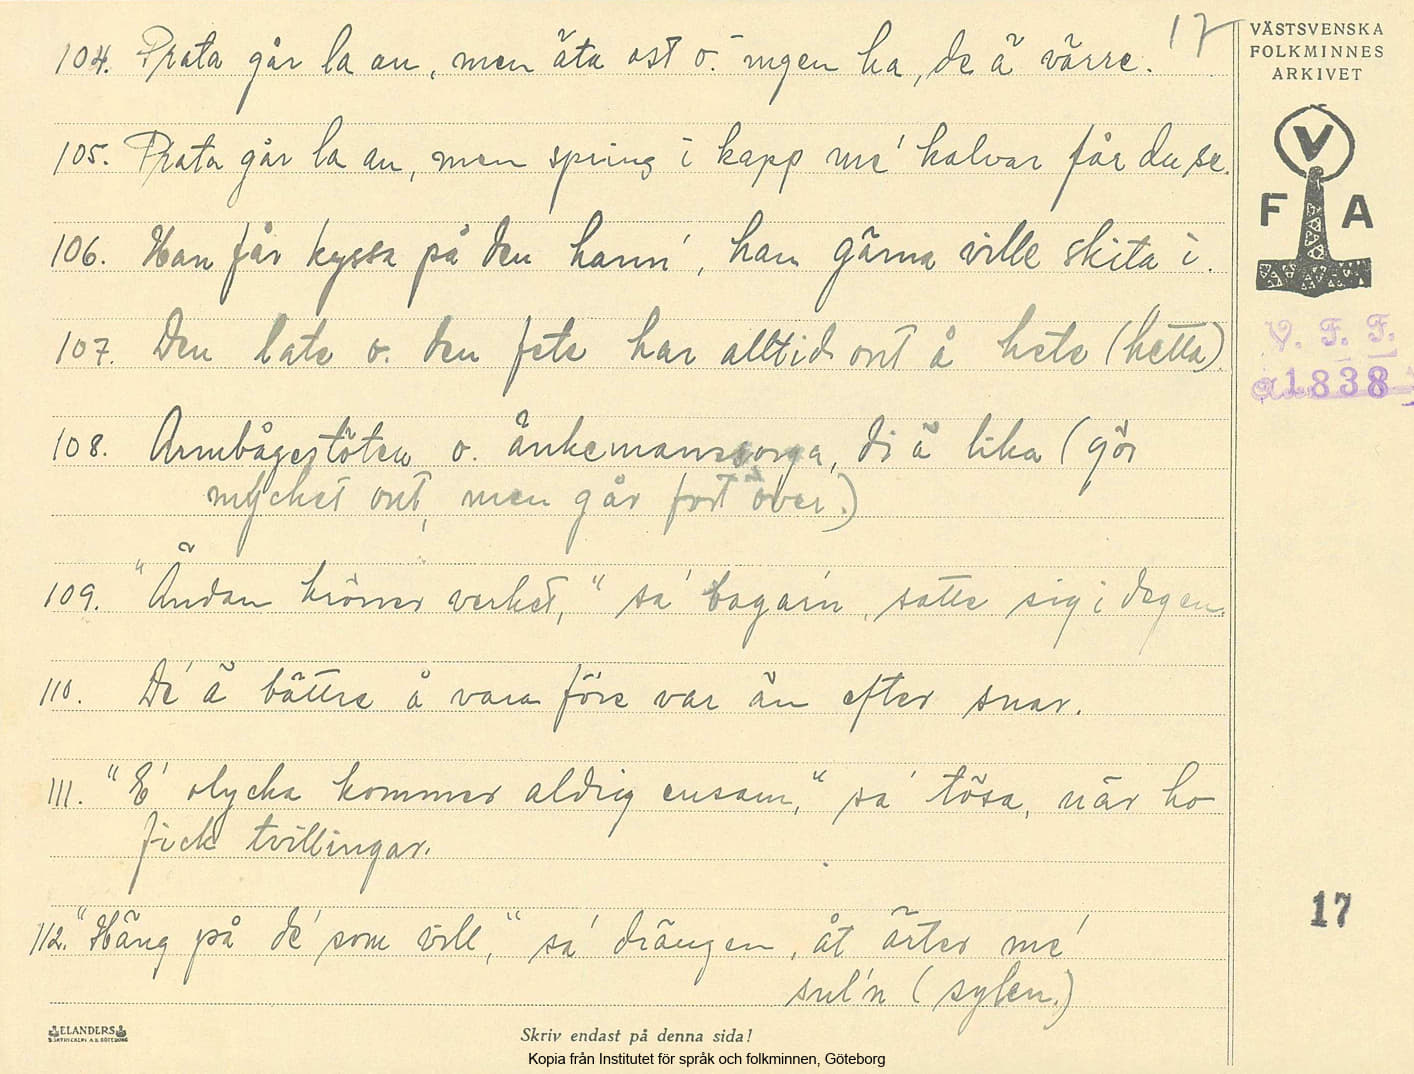 17
VÄSTSVENSKA
FOLKMINNES
ARKIVET
V
F A
V. F. F.
1838
104. Prata går la an, men äta ost o. ingen ha, de ä värre.
105. Prata går la an, men spring i kapp me' kalvar får du se.
106. Han får kyssa på den hann', han gärna ville skita i.
107. Den late o. den fete har alltid ont å hete (hetta).
108. Armbågestöten o. änkemanssorga, di ä lika (gör
mycket ont, men går fort över.)
109. "Ändan kröner verket," sa' bagarn, satte sig i degen.
110. De' ä bättre å vara före var än efter snar.
111. "E' olycka kommer aldrig ensam," sa' tösa, när ho
fick tvillingar.
112. "Häng på de' som vill," sa' drängen, åt ärter me'
sul'n (sylen.)
17
ELANDERS
Skriv endast på denna sida!
Kopia från Institutet för språk och folkminnen, Göteborg